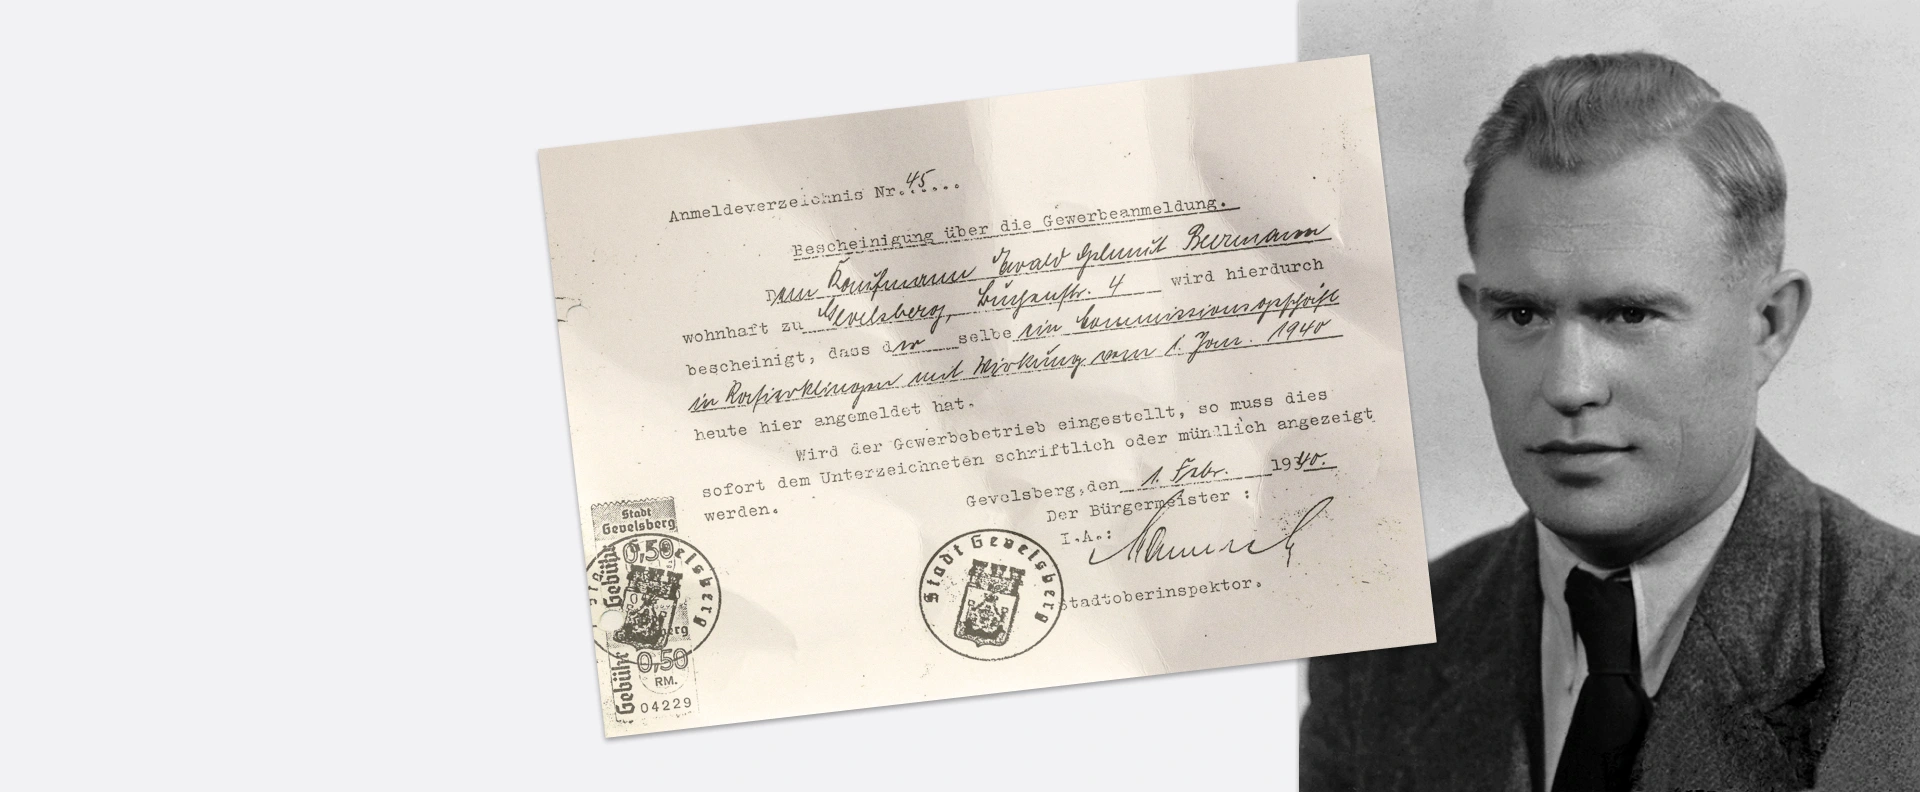 Anmeldeverzeichnis Nr. 45...
Bescheinigung über die Gewerbeanmeldung.
Dem Kaufmann Ewald Helmut Beermann
wohnhaft zu Gevelsberg, Buchenstr. 4 wird hierdurch
bescheinigt, dass der selbe ein Commissionsgeschäft
in Rasierklingen mit Wirkung vom 1. Jan. 1940
heute hier angemeldet hat.
Wird der Gewerbebetrieb eingestellt, so muss dies
sofort dem Unterzeichneten schriftlich oder mündlich angezeigt
werden.
Gevelsberg, den 1. Febr. 1940.
Der Bürgermeister :
I.A.:
Stadtoberinspektor.
Stadt Gevelsberg
Stadt
Gevelsberg
Gebühr
0,50
Stadt Gevelsberg
Gebühr
0,50
RM.
04229